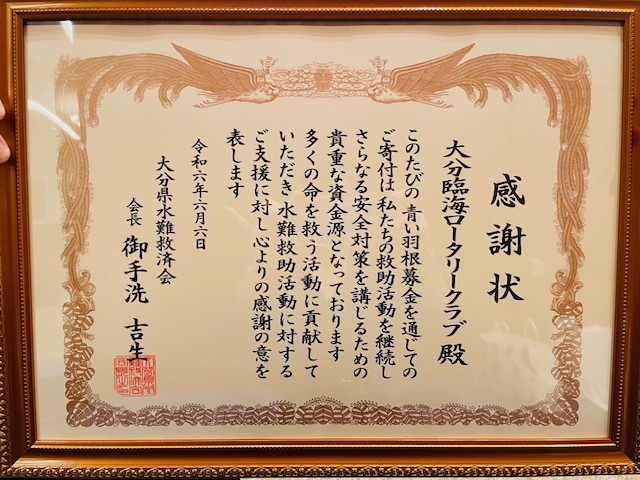 感謝状
大分臨海ロータリークラブ 殿
このたびの 青い羽根募金を通じての
ご寄付は 私たちの救助活動を継続し
さらなる安全対策を講じるための
貴重な資金源となっております
多くの命を救う活動に貢献して
いただき 水難救助活動に対する
ご支援に対し心よりの感謝の意を
表します
令和六年六月六日
大分県水難救済会
会長 御手洗 吉生